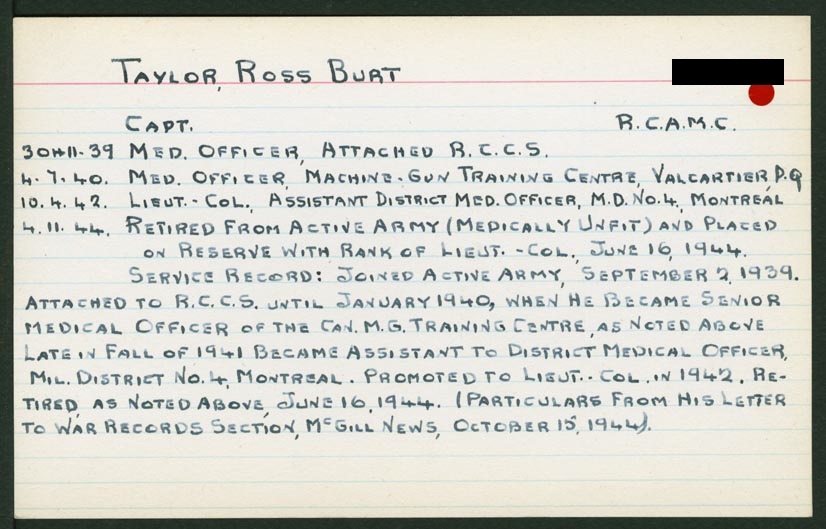 TAYLOR, ROSS BURT
CAPT. R.C.A.M.C.
30-11-39 MED. OFFICER, ATTACHED R.C.C.S.
4.7.40. MED. OFFICER, MACHINE-GUN TRAINING CENTRE, VALCARTIER P.Q
10.4.42. LIEUT.-COL., ASSISTANT DISTRICT MED. OFFICER, M.D. NO.4, MONTREAL
4.11.44. RETIRED FROM ACTIVE ARMY (MEDICALLY UNFIT) AND PLACED
ON RESERVE WITH RANK OF LIEUT.-COL., JUNE 16, 1944.
SERVICE RECORD: JOINED ACTIVE ARMY, SEPTEMBER 2, 1939.
ATTACHED TO R.C.C.S. UNTIL JANUARY 1940, WHEN HE BECAME SENIOR
MEDICAL OFFICER OF THE CAN. M.G. TRAINING CENTRE, AS NOTED ABOVE
LATE IN FALL OF 1941 BECAME ASSISTANT TO DISTRICT MEDICAL OFFICER,
MIL. DISTRICT NO.4, MONTREAL. PROMOTED TO LIEUT.-COL. IN 1942. RE-
TIRED, AS NOTED ABOVE, JUNE 16, 1944. (PARTICULARS FROM HIS LETTER
TO WAR RECORDS SECTION, McGILL NEWS, OCTOBER 15, 1944).